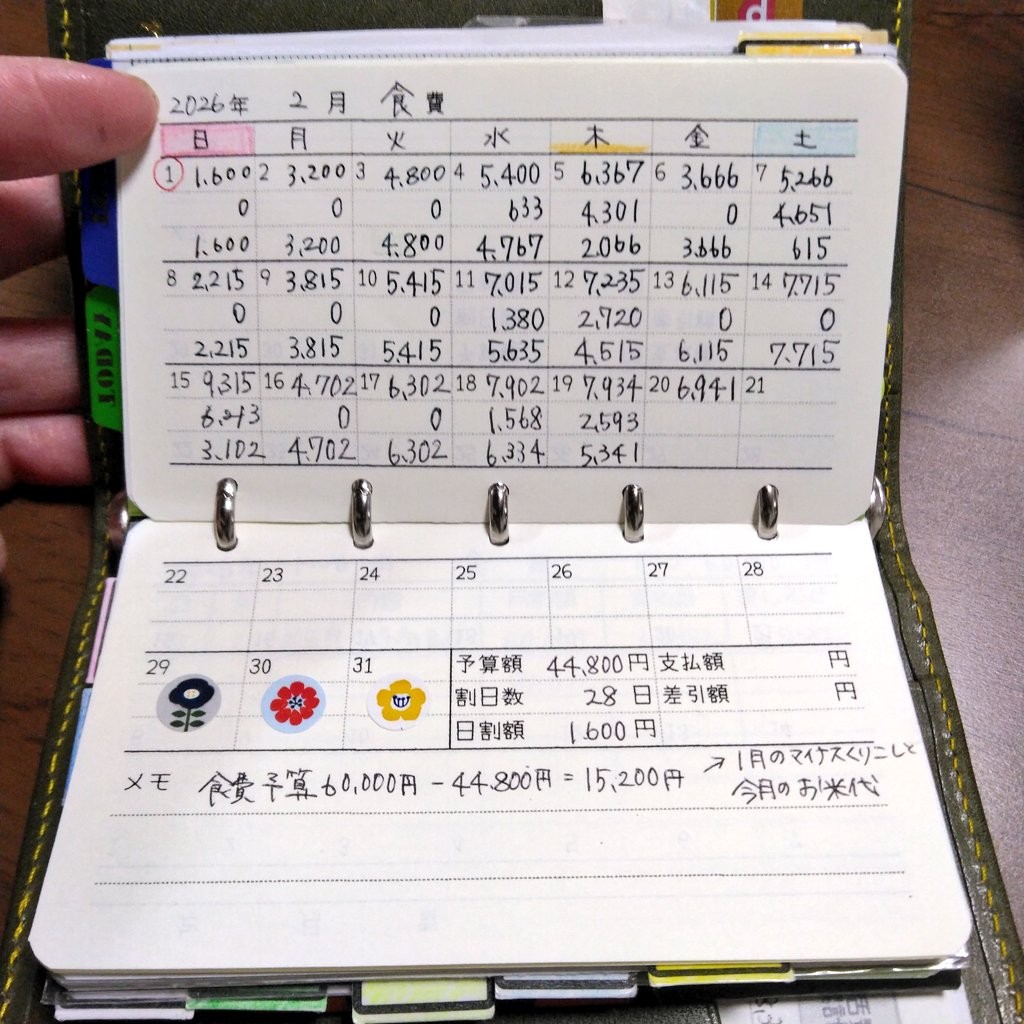 2026年 2月 食費
日 月 火 水 木 金 土
1 1,600 2 3,200 3 4,800 4 5,400 5 6,367 6 3,666 7 5,266
0 0 0 633 4,301 0 4,651
1,600 3,200 4,800 4,767 2,066 3,666 615
8 2,215 9 3,815 10 5,415 11 7,015 12 7,235 13 6,115 14 7,715
0 0 0 1,380 2,720 0 0
2,215 3,815 5,415 5,635 4,515 6,115 7,715
15 9,315 16 4,702 17 6,302 18 7,902 19 7,934 20 6,941 21
6,213 0 0 1,568 2,593
3,102 4,702 6,302 6,334 5,341
22 23 24 25 26 27 28
29 30 31 予算額 44,800円 支払額 円
割日数 28日 差引額 円
日割額 1,600円
メモ 食費予算60,000円-44,800円=15,200円 →1月のマイナスくりこしと
今月のお米代